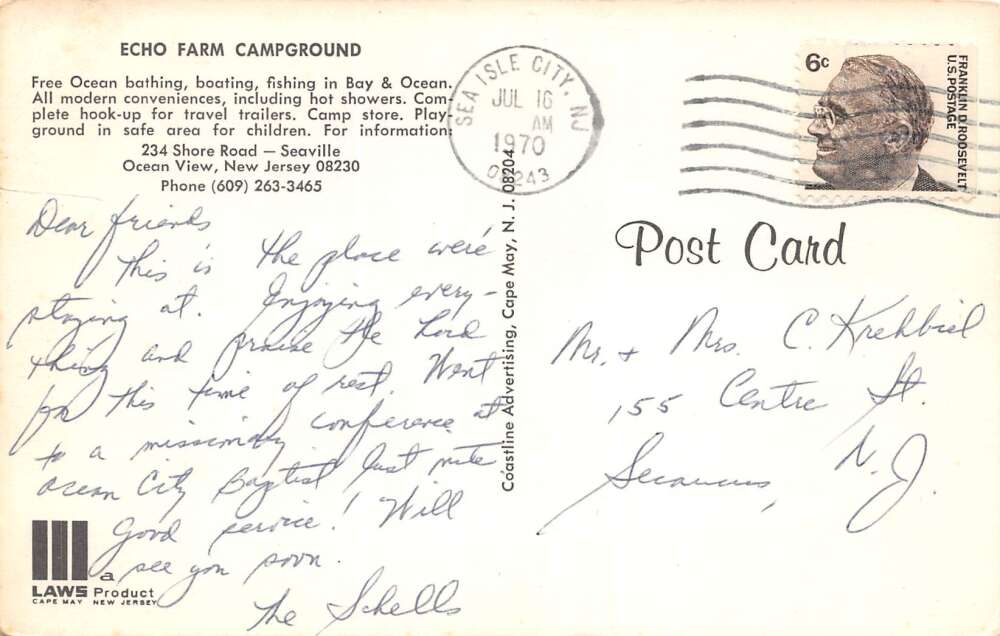 ECHO FARM CAMPGROUND
Free Ocean bathing, boating, fishing in Bay & Ocean.
All modern conveniences, including hot showers. Com-
plete hook-up for travel trailers. Camp store. Play-
ground in safe area for children. For information:
234 Shore Road — Seaville
Ocean View, New Jersey 08230
Phone (609) 263-3465
Dear friends
This is the place we're
staying at. Enjoying every-
thing and praise the Lord
for this time of rest. Went
to a missionary conference at
Ocean City Baptist last nite
Good service! Will
see you soon.
The Schells
LAWS a Product
CAPE MAY NEW JERSEY
Coastline Advertising, Cape May, N. J. 08204
SEA ISLE CITY, NJ
JUL 16
AM
1970
08243
6c
FRANKLIN D. ROOSEVELT
U.S. POSTAGE
Post Card
Mr. + Mrs. C. Krehbiel
155 Centre St.
Secaucus, N.J.